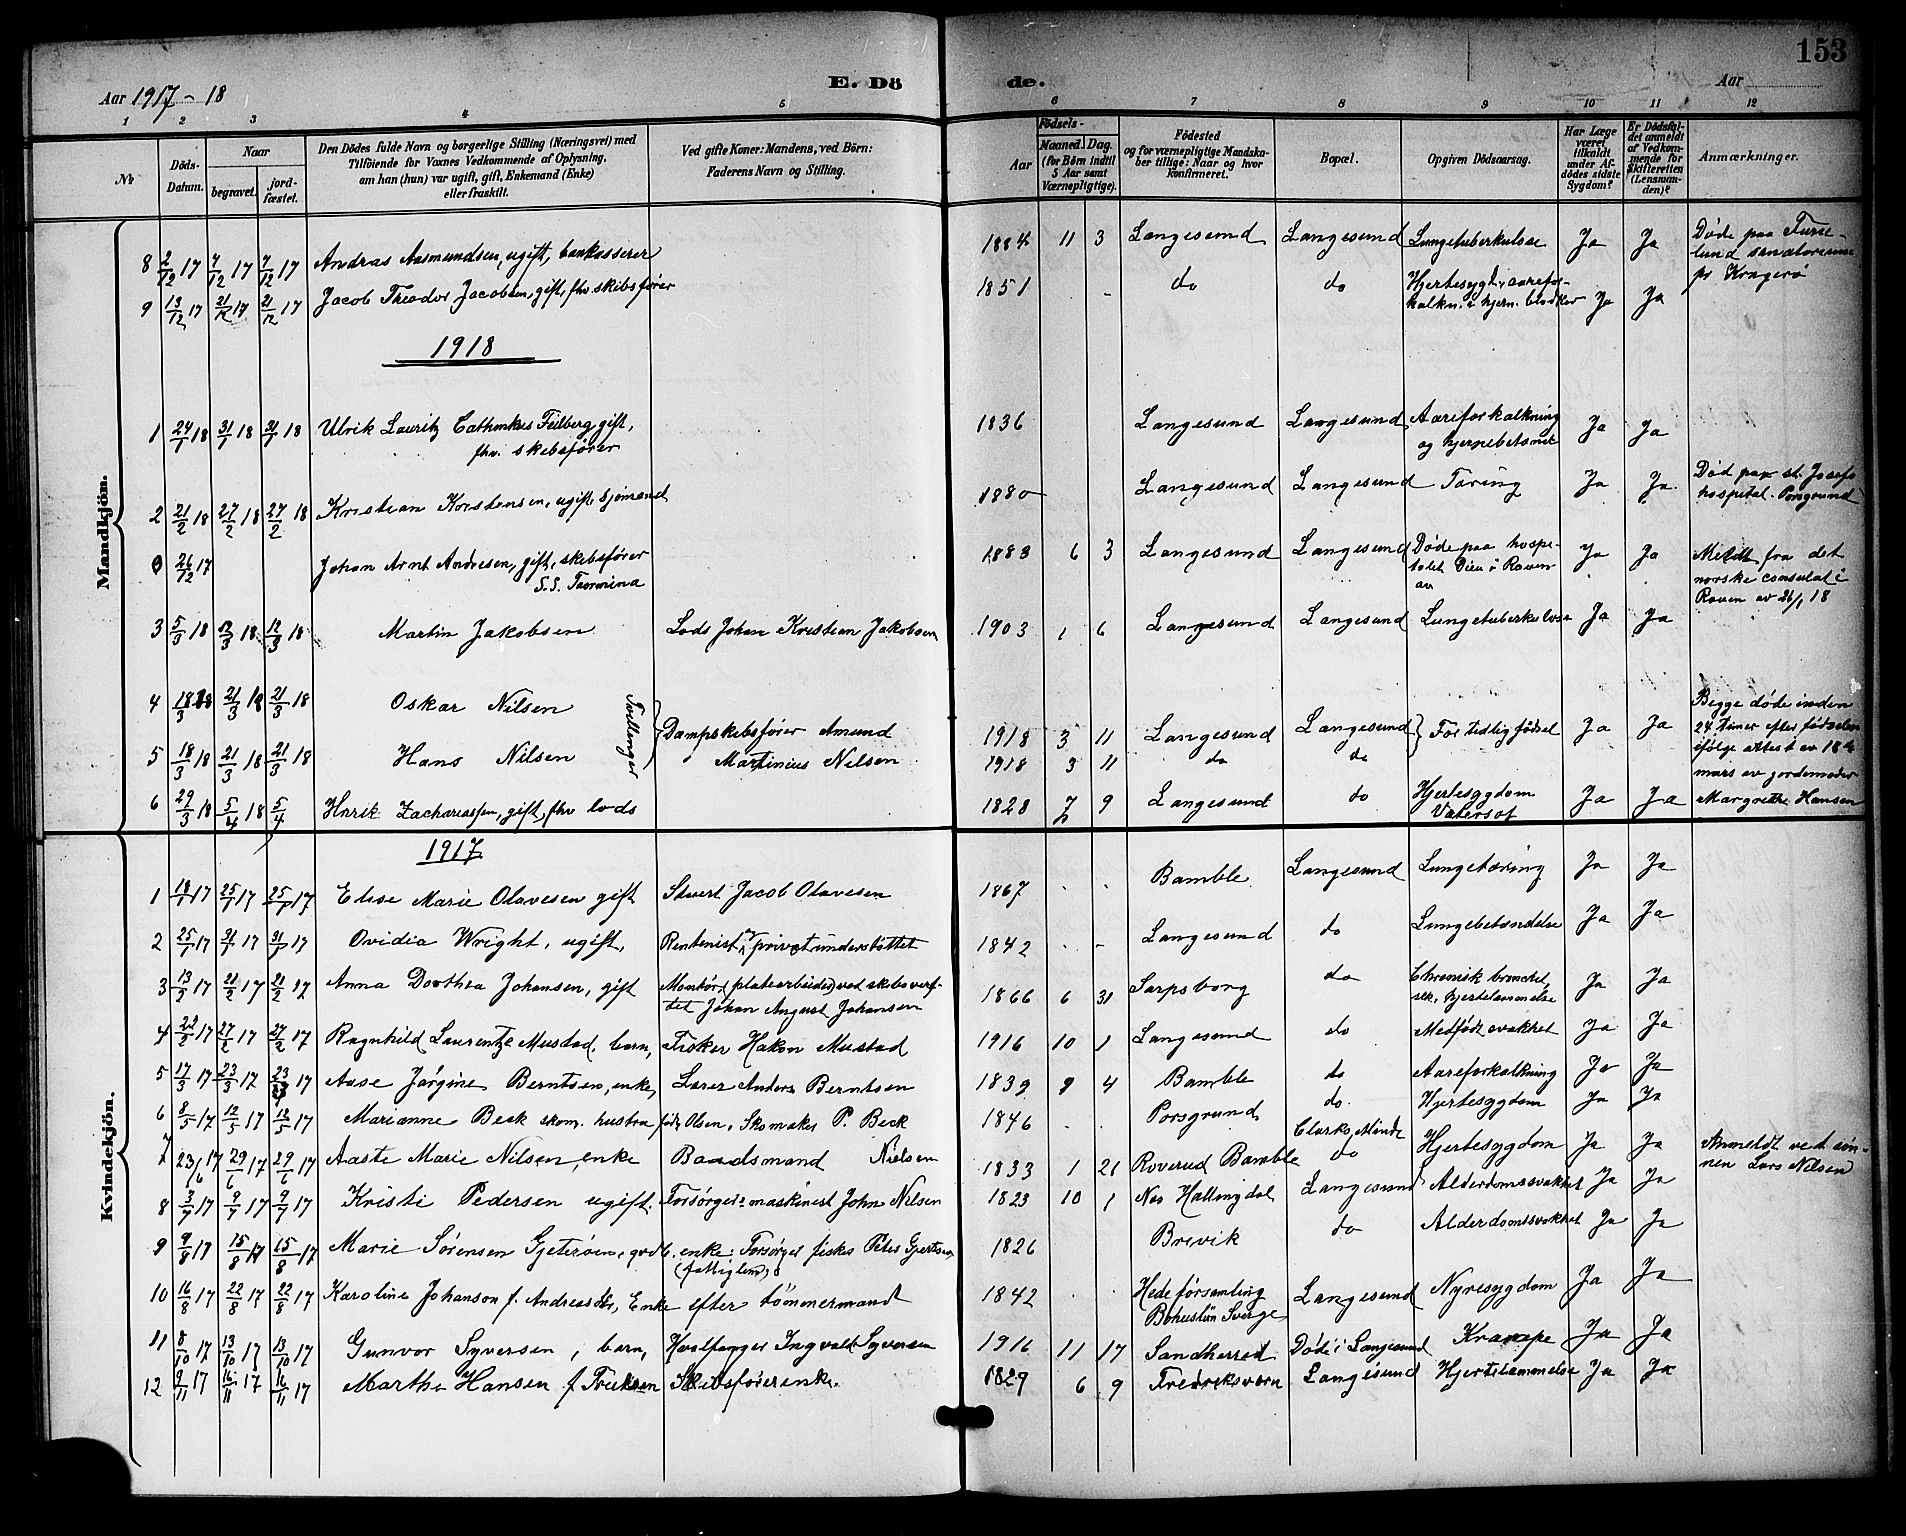 153
Aar 1917 - 18 E. Dö de. Aar
1 2 3 4 5 6 7 8 9 10 11 12
№ Döds-Datum. Naar begravet. jordfæstet. Den Dödes fulde Navn og borgerlige Stilling (Næringsvei) med Tilföiende for Voxnes Vedkommende af Oplysning, om han (hun) var ugift, gift, Enkemand (Enke) eller fraskilt. Ved gifte Koner: Mandens, ved Börn: Faderens Navn og Stilling. Födsels- Aar Maaned. Dag. (for Börn indtil 5 Aar samt Værnepligtige). Födested og for værnepligtige Mandskaber tillige: Naar og hvor konfirmeret. Bopæl. Opgiven Dödsaarsag. Har Læge været tilkaldt under Afdödes sidste Sygdom? Er Dödsfaldet anmeldt af Vedkommende for Skifteretten (Lensmanden)? Anmærkninger.
Mandkjön.
8 2/12 17 7/12 17 7/12 17 Andras Aasmundsen, ugift, bankasserer 1884 11 3 Langesund Langesund Lungetuberkulose Ja Ja Døde paa Furulund sanatorium pr Kragerø
9 13/12 17 21/12 17 21/12 17 Jacob Theodor Jacobsen, gift, fhv. skibsfører 1851 - do do Hjertesygd., aareforkalkn. i hjern. blodkar Ja Ja
1918
1 24/1 18 31/1 18 31/1 18 Ulrik Lauritz Cathinkus Feilberg, gift, fhv. skibsfører 1836 Langesund Langesund Aareforkalkning og hjernebetænd Ja Ja
2 21/2 18 27/2 18 27/2 18 Kristian Kristensen, ugift, sjömand 1880 Langesund Langesund Tæring Ja Ja Død paa st. Josefs hospital. Porsgrund
0 26/12 17 Johan Arnt Andresen, gift, skibsfører S.S. Taormina 1883 6 3 Langesund Langesund Døde paa hospitalet Dieu i Rouen Ja Ja Meldt fra det norske consulat i Rouen av 26/1 18
3 5/3 18 12/3 18 12/3 18 Martin Jakobsen Lods Johan Kristian Jakobsen 1903 1 6 Langesund Langesund Lungetuberkulose Ja Ja
4 18/3 18 21/3 18 21/3 18 Oskar Nilsen Tvillinger Dampskibsfører Amund 1918 3 11 Langesund Langesund For tidlig fødsel Ja Ja Begge døde inden 24 timer efter fødselen
5 18/3 18 21/3 18 21/3 18 Hans Nilsen Martinius Nilsen 1918 3 11 do do ifølge attest av 18de mars av jordemoder
6 29/3 18 5/4 18 5/4 Hnrik Zachariassen, gift, fhv lods 1828 7 9 Langesund do Hjertesygdom Vatersot Ja Ja Margrethe Hansen
Kvindekjön.
1917
1 18/1 17 25/1 17 25/1 17 Elise Marie Olavesen gift Stuert Jacob Olavesen 1867 . . Bamble Langesund Lungetæring Ja Ja
2 25/1 17 31/1 17 31/1 17 Ovidia Wright, ugift, Rentenist privat understøttet 1842 . - Langesund do Lungebetændelse Ja Ja
3 13/2 17 21/2 17 21/2 17 Anna Dorthea Johansen, gift Montør (platearbeider) ved skibsverftet Johan August Johansen 1866 6 31 Sarpsborg do Chronisk bronchit, sek. hjertelammelse Ja Ja
4 22/2 17 27/2 17 27/2 17 Ragnhild Laurentze Mustad, barn, Fisker Hakon Mustad 1916 10 1 Langesund do Medfødt svakhet Ja Ja
5 17/3 17 23/3 17 23/3 17 Aase Jørgine Berntsen, enke, Lærer Anders Berntsen 1839 9 4 Bamble do Aareforkalkning Ja Ja
6 8/5 17 12/5 17 12/5 17 Marianne Beck skom. hustru født Olsen, Skomaker P. Beck 1846 . . Porsgrund do. Hjertesygdom Ja Ja
7 23/6 17 29/6 17 29/6 17 Aaste Marie Nilsen, enke Baadsmand Nielsen 1833 1 21 Roverud Bamble Clarks Minde do Hjertesygdom Ja Ja Anmeldt ved sønnen Lars Nilsen
8 3/7 17 9/7 17 9/7 17 Kristi Pedersen ugift. Forsørger: maskinist John Nilsen 1823 10 1 Nes Hallingdal Langesund Alderdomssvakhet Ja Ja
9 9/8 17 15/8 17 15/8 17 Marie Sørensen Gjeterøen, gvdb. enke. Forsørger fisker Peter Gjertsen (fattiglem) 1826 Brevik do Alderdomssvakhet Ja Ja
10 16/8 17 22/8 17 22/8 17 Karoline Johanson f. Andreasdtr, Enke efter tømmermand 1842 . . Hede forsamling Bohuslän Sverge Langesund Nyresygdom Ja Ja
11 8/10 17 13/10 17 13/10 17 Gunvor Syversen, barn, Hvalfanger Ingvald Syversen 1916 11 17 Sandherred Døde i Langesund Krampe Ja Ja
12 9/11 17 16/11 17 16/11 17 Martha Hansen f. Treiksen Skibsførerenke. 1829 6 9 Fredriksværn Langesund Hjertelammelse Ja Ja